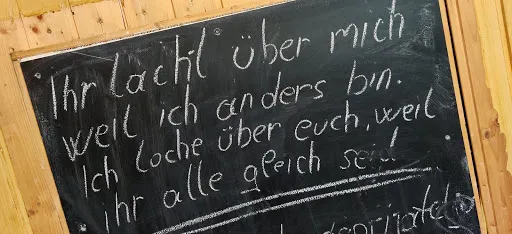 Ihr lacht über mich
weil ich anders bin.
Ich lache über euch, weil
ihr alle gleich seid